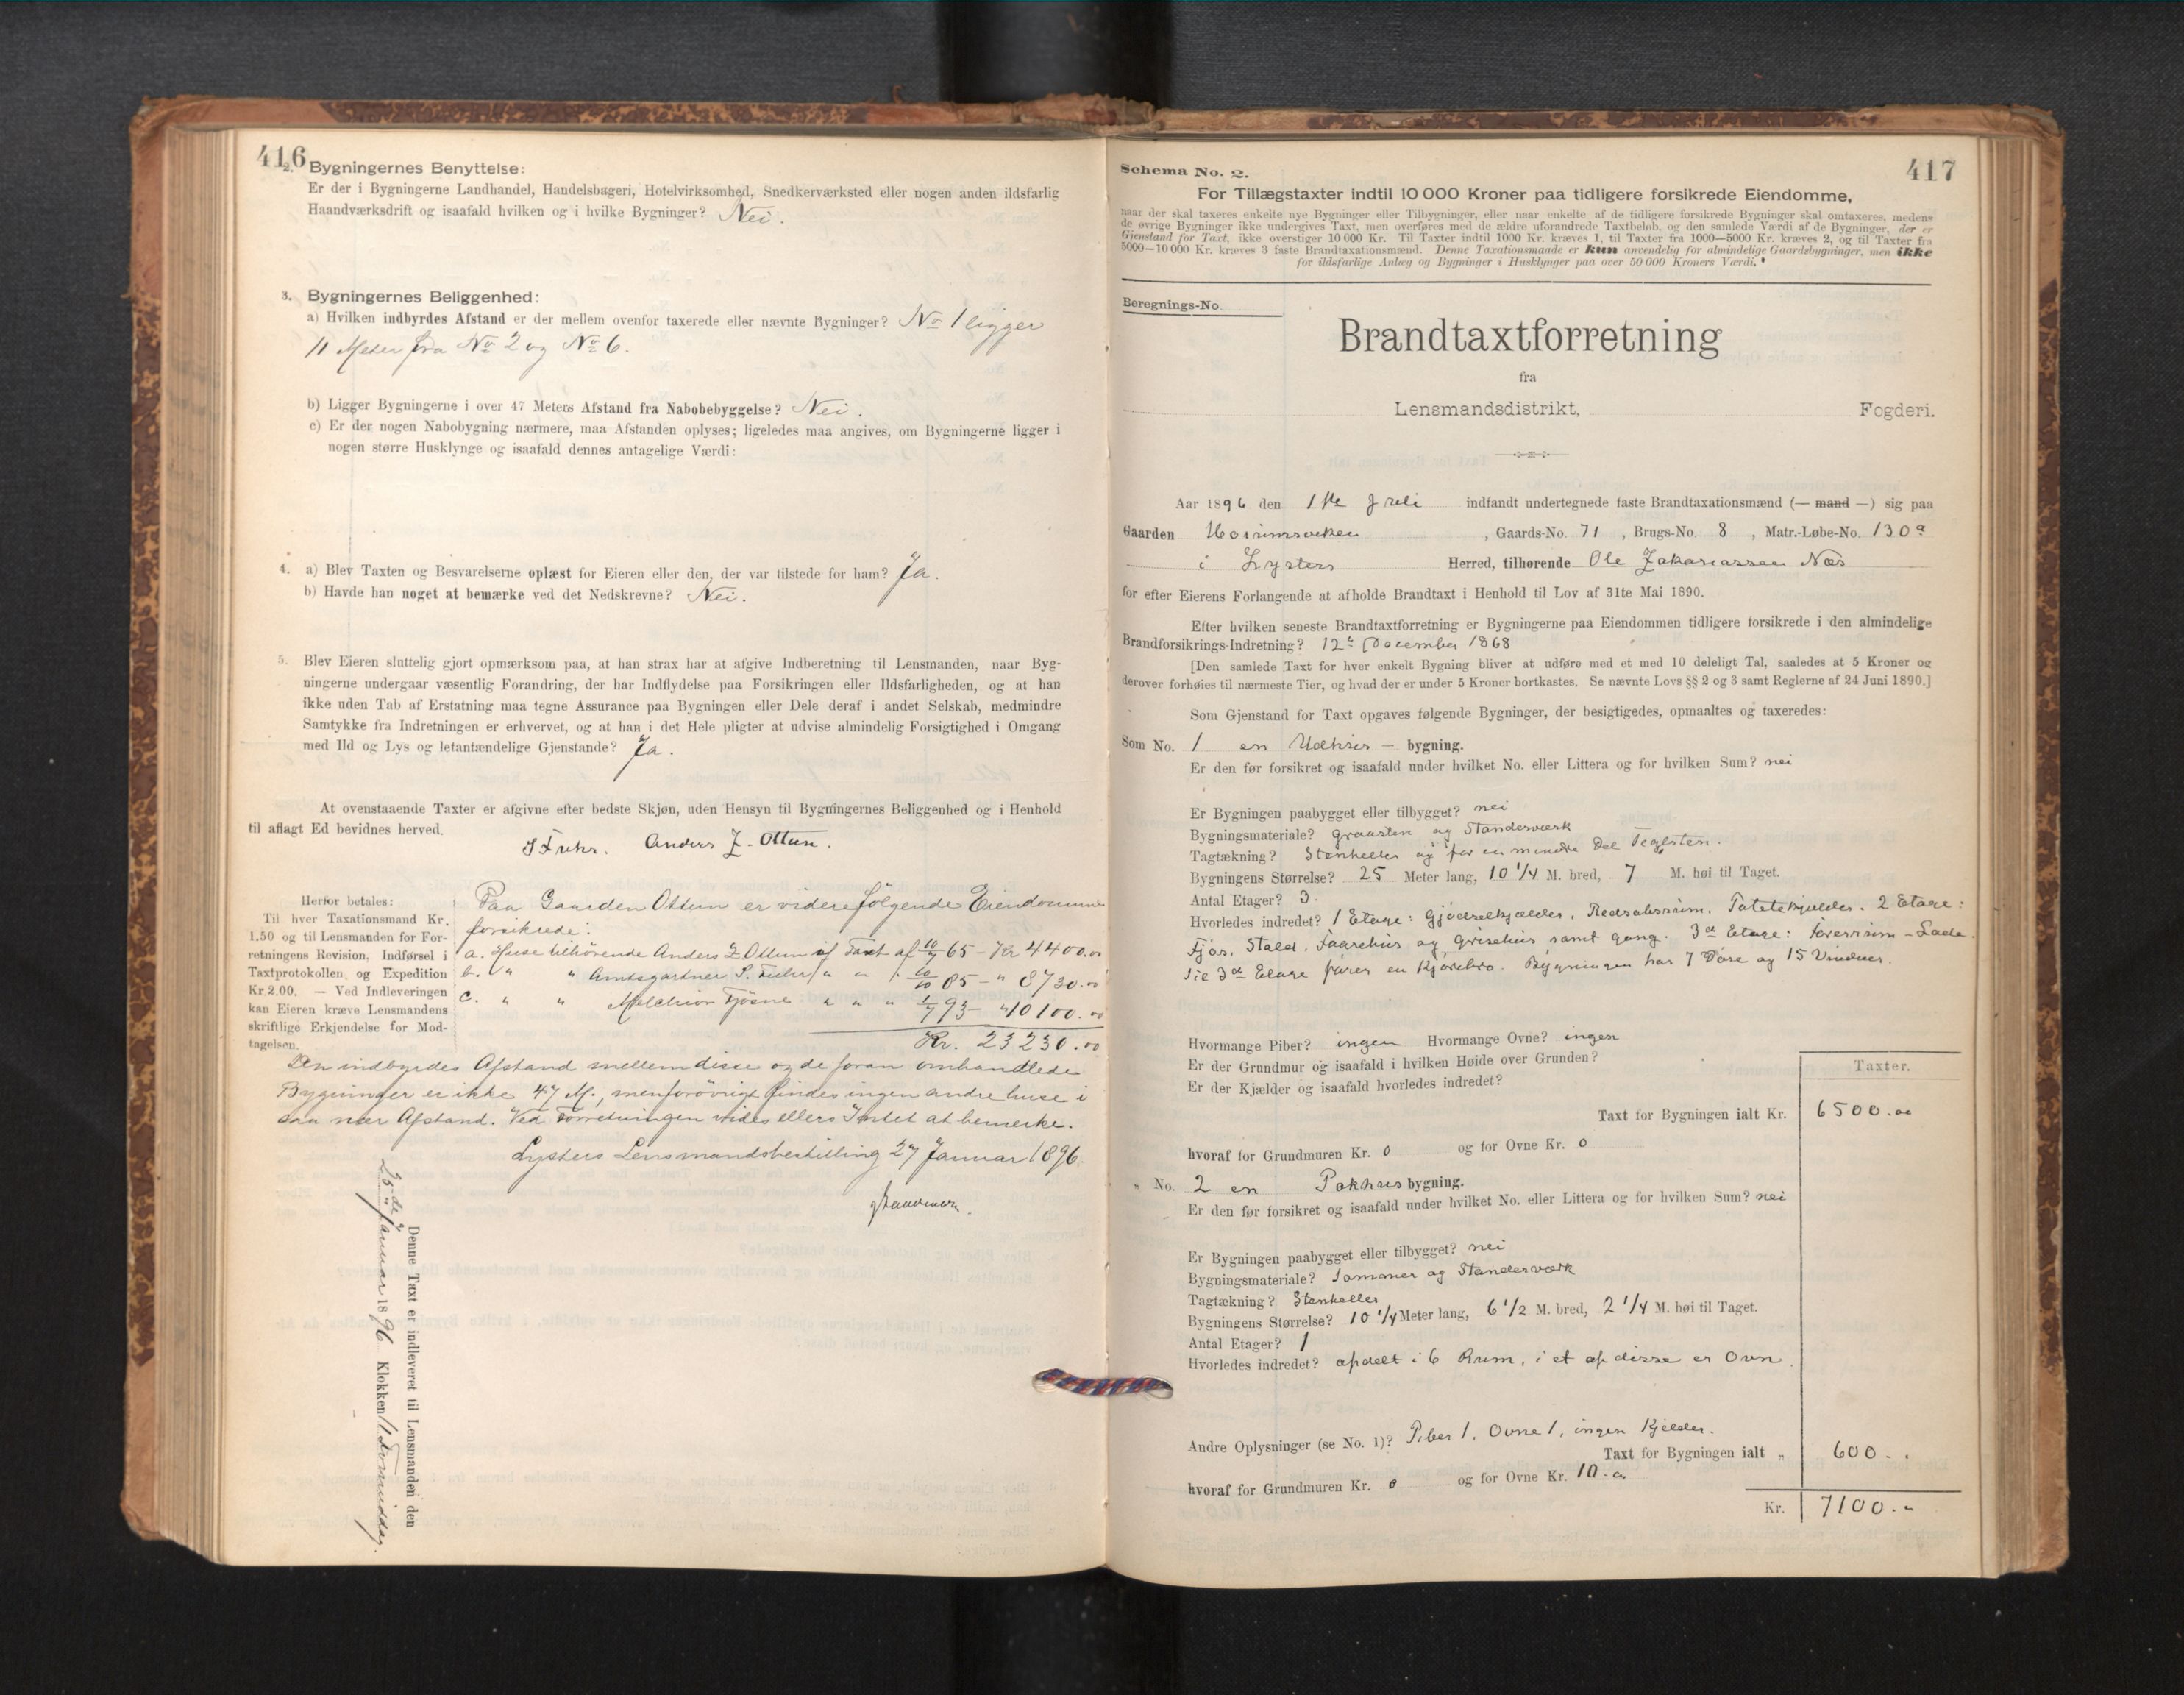 416
2. Bygningernes Benyttelse:
Er der i Bygningerne Landhandel, Handelsbageri, Hotelvirksomhed, Snedkerværksted eller nogen anden ildsfarlig
Haandværksdrift og isaafald hvilken og i hvilke Bygninger? Nei.
3. Bygningernes Beliggenhed:
a) Hvilken indbyrdes Afstand er der mellem ovenfor taxerede eller nævnte Bygninger? No 1 ligger
11 Meter fra No 2 og No 6.
b) Ligger Bygningerne i over 47 Meters Afstand fra Nabobebyggelse? Nei.
c) Er der nogen Nabobygning nærmere, maa Afstanden oplyses; ligeledes maa angives, om Bygningerne ligger i
nogen større Husklynge og isaafald dennes antagelige Værdi:
4. a) Blev Taxten og Besvarelserne oplæst for Eieren eller den, der var tilstede for ham? Ja.
b) Havde han noget at bemærke ved det Nedskrevne? Nei.
5. Blev Eieren sluttelig gjort opmærksom paa, at han strax har at afgive Indberetning til Lensmanden, naar Byg-
ningerne undergaar væsentlig Forandring, der har Indflydelse paa Forsikringen eller Ildsfarligheden, og at han
ikke uden Tab af Erstatning maa tegne Assurance paa Bygningen eller Dele deraf i andet Selskab, medmindre
Samtykke fra Indretningen er erhvervet, og at han i det Hele pligter at udvise almindelig Forsigtighed i Omgang
med Ild og Lys og letantændelige Gjenstande? Ja.
At ovenstaaende Taxter er afgivne efter bedste Skjøn, uden Hensyn til Bygningernes Beliggenhed og i Henhold
til aflagt Ed bevidnes herved.
Anders Z. Ottum.
Herfor betales:
Til hver Taxationsmand Kr.
1.50 og til Lensmanden for For-
retningens Revision, Indførsel i
Taxtprotokollen og Expedition
Kr 2.00. — Ved Indleveringen
kan Eieren kræve Lensmandens
skriftlige Erkjendelse for Mod-
tagelsen.
Paa Gaarden Ottum er videre følgende Eiendomme
forsikrede:
a. Huse tilhörende Anders Z. Ottum af Taxt af 10/7 65 - Kr 4400.00
b. " " Amtsgartner " " 85 - " 8730.00
c. " " Melchior " " " 1/7 93 - " 10100.00
Kr. 23230.00
Den indbyrdes Afstand mellem disse og de foran omhandlede
Bygninger er ikke 47 M., men forövrigt findes ingen andre huse i
saa nær Afstand. Ved Forretningen vides ellers Intet at bemerke.
Lysters Lensmandsbestilling 27 Januar 1896.
Denne Taxt er indleveret til Lensmanden den
25de Januar 1896 Klokken 11 Formiddag.
417
Schema No. 2.
For Tillægstaxter indtil 10 000 Kroner paa tidligere forsikrede Eiendomme,
naar der skal taxeres enkelte nye Bygninger eller Tilbygninger, eller naar enkelte af de tidligere forsikrede Bygninger skal omtaxeres, medens
de øvrige Bygninger ikke undergives Taxt, men overføres med de ældre uforandrede Taxtbeløb, og den samlede Værdi af de Bygninger, der er
Gjenstand for Taxt, ikke overstiger 10 000 Kr. Til Taxter indtil 1000 Kr. kræves 1, til Taxter fra 1000—5000 Kr. kræves 2, og til Taxter fra
5000—10 000 Kr. kræves 3 faste Brandtaxationsmænd. Denne Taxationsmaade er kun anvendelig for almindelige Gaardsbygninger, men ikke
for ildsfarlige Anlæg og Bygninger i Husklynger paa over 50 000 Kroners Værdi.
Beregnings-No.
Brandtaxtforretning
fra
Lensmandsdistrikt, Fogderi.
Aar 1896 den 1ste Juli indfandt undertegnede faste Brandtaxationsmænd (— mand —) sig paa
Gaarden , Gaards-No. 71 , Brugs-No. 8 , Matr.-Løbe-No. 130a
i Lysters Herred, tilhørende Ole Zakariassen Næs
for efter Eierens Forlangende at afholde Brandtaxt i Henhold til Lov af 31te Mai 1890.
Efter hvilken seneste Brandtaxtforretning er Bygningerne paa Eiendommen tidligere forsikrede i den almindelige
Brandforsikrings-Indretning? 12te December 1868
[Den samlede Taxt for hver enkelt Bygning bliver at udføre med et med 10 deleligt Tal, saaledes at 5 Kroner og
derover forhøies til nærmeste Tier, og hvad der er under 5 Kroner bortkastes. Se nævnte Lovs §§ 2 og 3 samt Reglerne af 24 Juni 1890.]
Som Gjenstand for Taxt opgaves følgende Bygninger, der besigtigedes, opmaaltes og taxeredes:
Som No. 1 en Udhus — bygning.
Er den før forsikret og isaafald under hvilket No. eller Littera og for hvilken Sum? nei
Er Bygningen paabygget eller tilbygget? nei
Bygningsmateriale? Graasten og Standerværk
Tagtækning? Stenheller og for en mindre Del Teglsten.
Bygningens Størrelse? 25 Meter lang, 10 1/4 M. bred, 7 M. høi til Taget.
Antal Etager? 3.
Hvorledes indredet? 1 Etage: Gjødselkjælder, Redskabsrum, Potetekjælder. 2 Etage:
Fjøs, Stald, Faarehus og Grisehus samt gang. 3de Etage: Foderrum - Lade.
Til 3de Etage fører en Kjørebro. Bygningen har 7 Døre og 15 Vinduer.
Hvormange Piber? ingen Hvormange Ovne? ingen
Er der Grundmur og isaafald i hvilken Høide over Grunden?
Er der Kjælder og isaafald hvorledes indredet?
Taxter.
Taxt for Bygningen ialt Kr. 6500.00
hvoraf for Grundmuren Kr. 0 og for Ovne Kr. 0
" No. 2 en Pakhus bygning.
Er den før forsikret og isaafald under hvilket No. eller Littera og for hvilken Sum? nei
Er Bygningen paabygget eller tilbygget? nei
Bygningsmateriale? Tømmer og Standerværk
Tagtækning? Stenheller
Bygningens Størrelse? 10 1/4 Meter lang, 6 1/2 M. bred, 2 1/4 M. høi til Taget.
Antal Etager? 1
Hvorledes indredet? afdelt i 6 Rum, i et af disse er Ovn.
Andre Oplysninger (se No. 1)? Piber 1, Ovne 1, ingen Kjelder.
Taxt for Bygningen ialt " 600 . "
hvoraf for Grundmuren Kr. 0 og for Ovne Kr. 10.00
Kr. 7100."